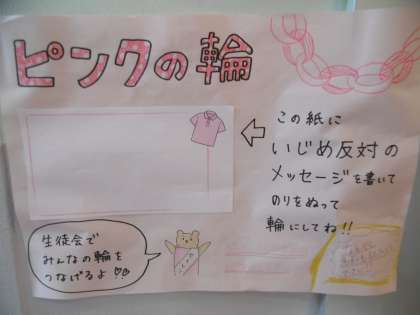 ピンクの輪
この紙に
いじめ反対の
メッセージを書いて
のりをぬって
輪にしてね!!
生徒会で
みんなの輪を
つなげるよ